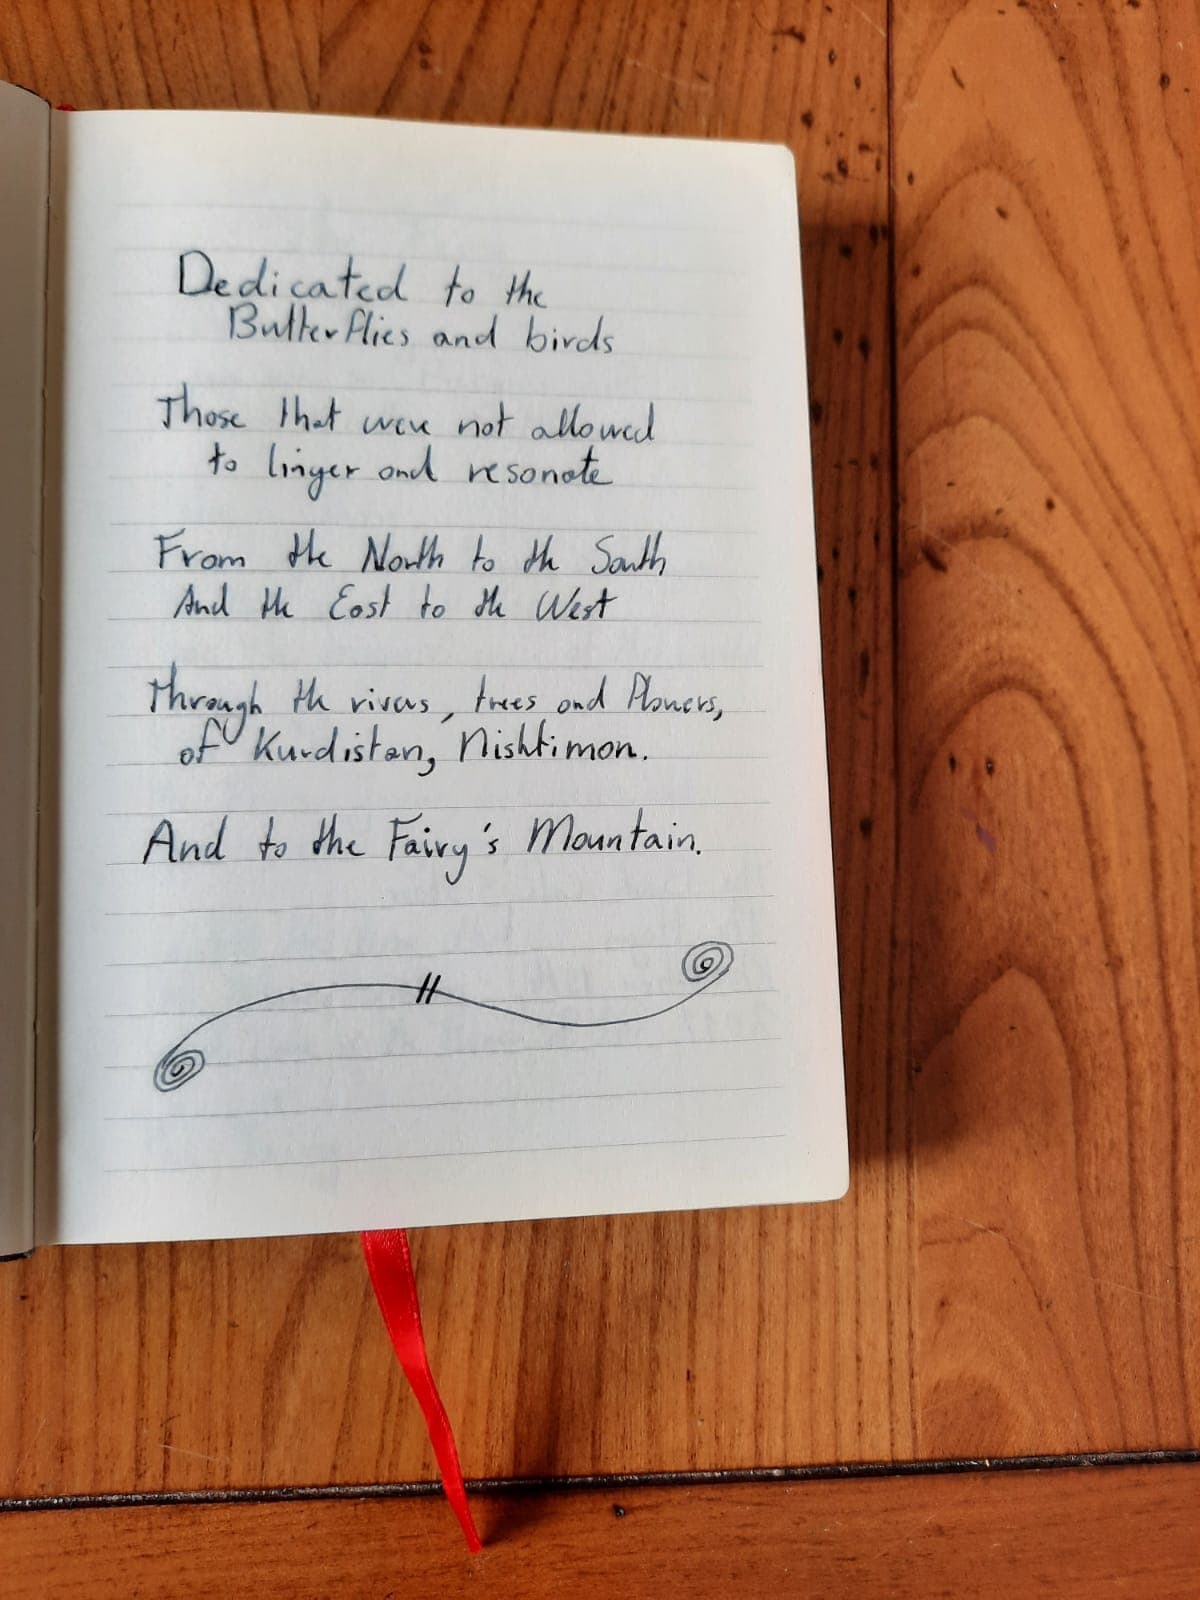 Dedicated to the
Butterflies and birds
Those that were not allowed
to linger and resonate
From the North to the South
And the East to the West
Through the rivers, trees and flowers,
of Kurdistan, Nishtiman.
And to the Fairy's Mountain.